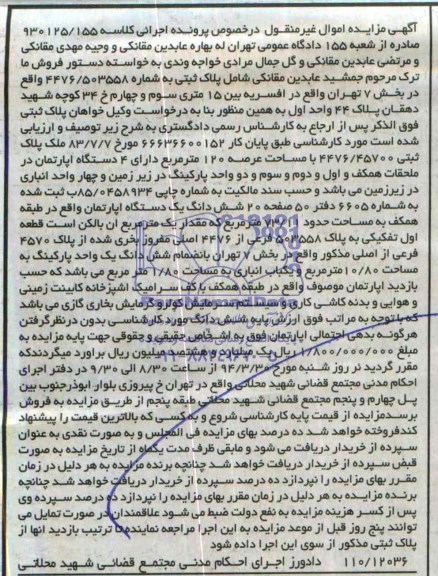 آگهی مزایده اموال غیرمنقول درخصوص پرونده اجرائی کلاسه ۹۳۰۱۲۵/۱۵۵
صادره از شعبه ۱۵۵ دادگاه عمومی تهران له بهاره عابدین مقانکی و وجیه مهدی مقانکی
و مرتضی عابدین مقانکی و گل جمال مرادی خواجه وندی به خواسته دستور فروش ما
ترک مرحوم جمشید عابدین مقانکی شامل پلاک ثبتی به شماره ۴۴۷۶/۵۰۳۵۵۸ واقع
در بخش ۷ تهران واقع در افسریه بین ۱۵ متری سوم و چهارم خ ۳۴ کوچه شهید
دهقان پلاک ۴۴ واحد اول به همین منظور بنا به درخواست وکیل خواهان پلاک ثبتی
فوق الذکر پس از ارجاع به کارشناس رسمی دادگستری به شرح زیر توصیف و ارزیابی
شده است مورد کارشناسی طبق پایان کار ۶۶۶۳۶۶۰۰۱۵۲ مورخ ۸۳/۷/۷ ملک پلاک
ثبتی ۴۴۷۶/۴۵۷۰۰ با مساحت عرصه ۱۲۰ مترمربع دارای ۴ دستگاه اپارتمان در
ملحقات همکف و اول و دوم و سوم و دو واحد پارکینگ در زیر زمین و چهار واحد انباری
در زیرزمین می باشد و حسب سند مالکیت به شماره چاپی ۸۵/۰۴۵۸۹۳۴ب ثبت شده
به شماره ۶۶۰۵ دفتر ۵۰ صفحه ۲۰ شش دانگ یک دستگاه اپارتمان واقع در طبقه
همکف به مساحت حدود ۷۳/۱۱ مترمربع که مقدار یک مترمربع ان بالکن است قطعه
اول تفکیکی به پلاک ۵۰۳۵۵۸ فرعی از ۴۴۷۶ اصلی مفروز بخری شده از پلاک ۴۵۷۰
فرعی از اصلی مذکور واقع در بخش ۷ تهران بانضمام شش دانگ یک واحد پارکینگ به
مساحت ۱۰/۸۰ مترمربع و یکباب انباری به مساحت ۱/۸۰ متر مربع می باشد که حسب
بازدید اپارتمان موصوف واقع در طبقه همکف با کف سرامیک اشپزخانه کابینت زمینی
و هوایی و بدنه کاشی کاری و سیستم سرمایش کولر و گرمایش بخاری گازی می باشد
که با توجه به مراتب فوق ارزش پایه شش دانگ مورد کارشناسی بدون درنظرگرفتن
هرگونه بدهی احتمالی اپارتمان فوق به اشخاص حقیقی و حقوقی جهت پایه مزایده به
مبلغ ۱/۸۰۰/۰۰۰/۰۰۰ ریال یک میلیارد و هشتصد میلیون ریال براورد میگردندکه
مقرر گردید نر روز شنبه مورخ ۹۴/۳/۳۰ از ساعت ۸/۳۰ الی ۹/۳۰ در دفتر اجرای
احکام مدنی مجتمع قضائی شهید محلاتی واقع در تهران خ پیروزی بلوار ابوذرجنوب بین
پل چهارم و پنجم مجتمع قضائی شهید محلاتی طبقه پنجم از طریق مزایده به فروش
برسدمزایده از قیمت پایه کارشناسی شروع و به کسی که بالاترین قیمت را پیشنهاد
کندفروخته خواهد شد ده درصد بهای مزایده فی المجلس و به صورت نقدی به عنوان
سپرده از خریدار دریافت می شود و مابقی ظرف مدت یکماه از تاریخ مزایده به صورت
قبض سپرده از خریدار دریافت خواهد شد چنانچه برنده مزایده به هر دلیل در زمان
مقرر بهای مزایده را نپردازد ده درصد سپرده از خریدار دریافت خواهد شد چنانچه
برنده مزایده به هر دلیل در زمان مقرر بهای مزایده را نپردازد ده درصد سپرده وی
پس از کسر هزینه مزایده به نفع دولت ضبط می شود علاقمندان در صورت تمایل می
توانند پنج روز قبل از موعد مزایده به این اجرا مراجعه نمایندتا ترتیب بازدید انها از
پلاک ثبتی مذکور از سوی این اجرا داده شود
۱۱۰/۱۲۰۳۶ دادورز اجرای احکام مدنی مجتمع قضائی شهید محلاتی